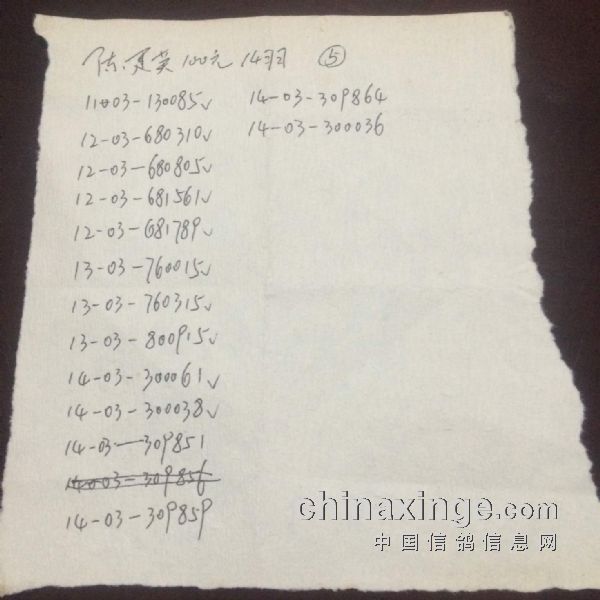 陈夏英100元 14羽 ⑤
11-03-130085√
12-03-680310√
12-03-680805√
12-03-681561√
12-03-681789√
13-03-760015√
13-03-760315√
13-03-800915√
14-03-300061√
14-03-300038√
14-03-309851
14-03-309856
14-03-309859
14-03-309864
14-03-300036
chinaxinge.com
中国信鸽信息网